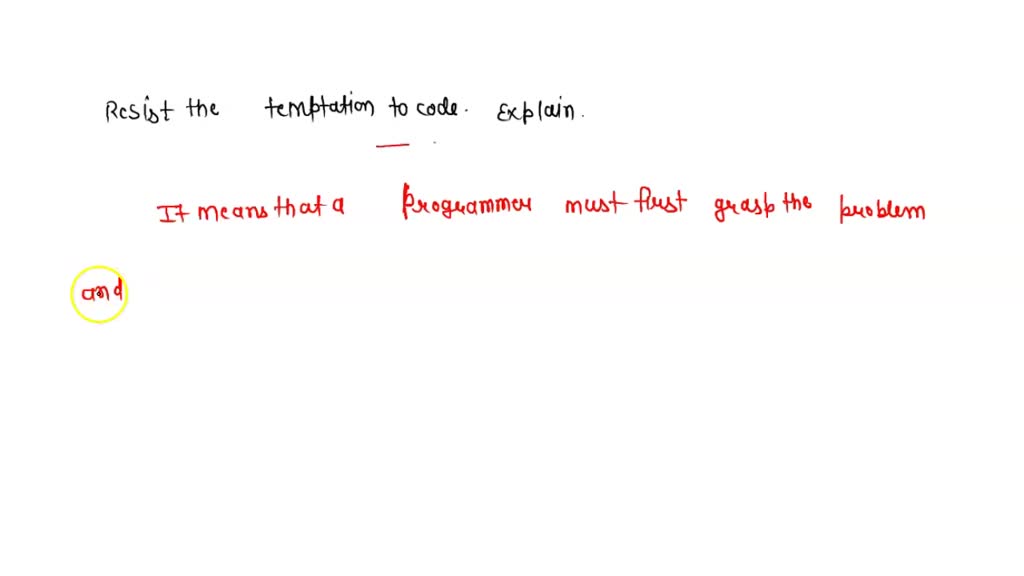 Resist the temptation to code. Explain.
It means that a Programmer must first grasp the problem
and